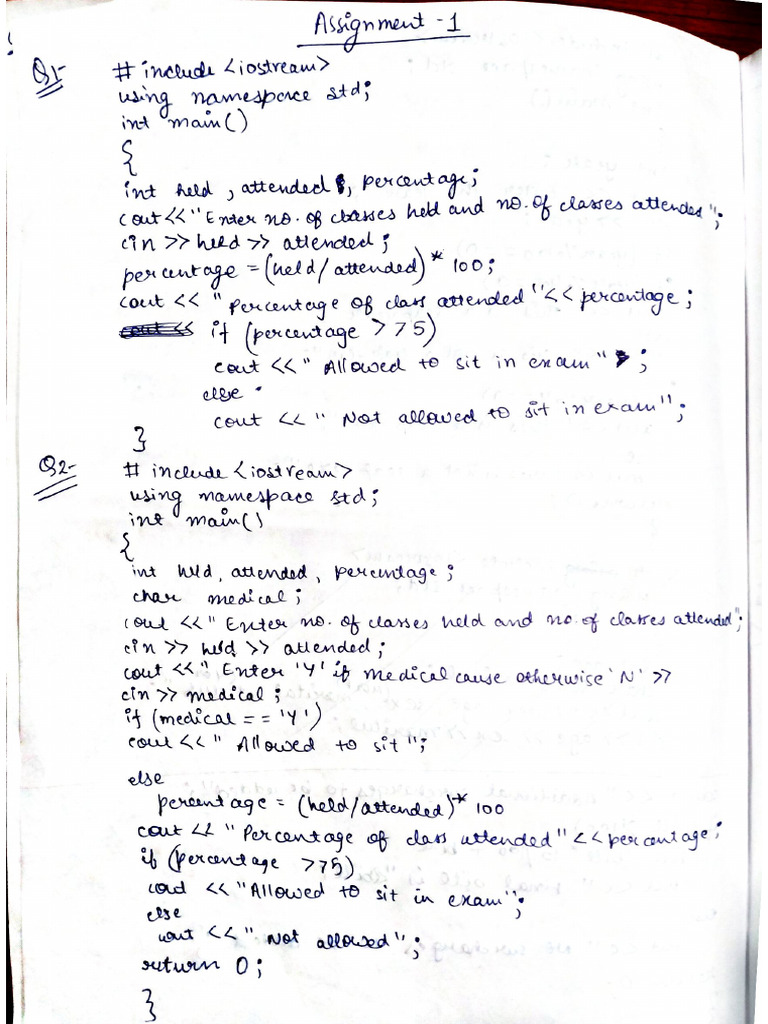 Assignment -1
Q1-
# include <iostream>
using namespace std;
int main()
{
int held , attended , percentage;
cout<<"Enter no. of classes held and no. of classes attended";
cin >> held >> attended ;
percentage = (held/attended)* 100;
cout << " percentage of class attended "<< percentage ;
if (percentage > 75)
cout << " Allowed to sit in exam" ;
else
cout << " Not allowed to sit in exam";
}
Q2-
# include <iostream>
using namespace std;
int main()
{
int held, attended, percentage ;
char medical ;
cout <<" Enter no. of classes held and no. of classes attended";
cin >> held >> attended ;
cout <<" Enter 'Y' if medical cause otherwise 'N' >>
cin >> medical ;
if (medical == 'Y')
cout << " Allowed to sit ";
else
percentage = (held/attended)* 100
cout << " Percentage of class attended" << percentage;
if (percentage >75)
cout << "Allowed to sit in exam";
else
cout << " Not allowed";
return 0;
}